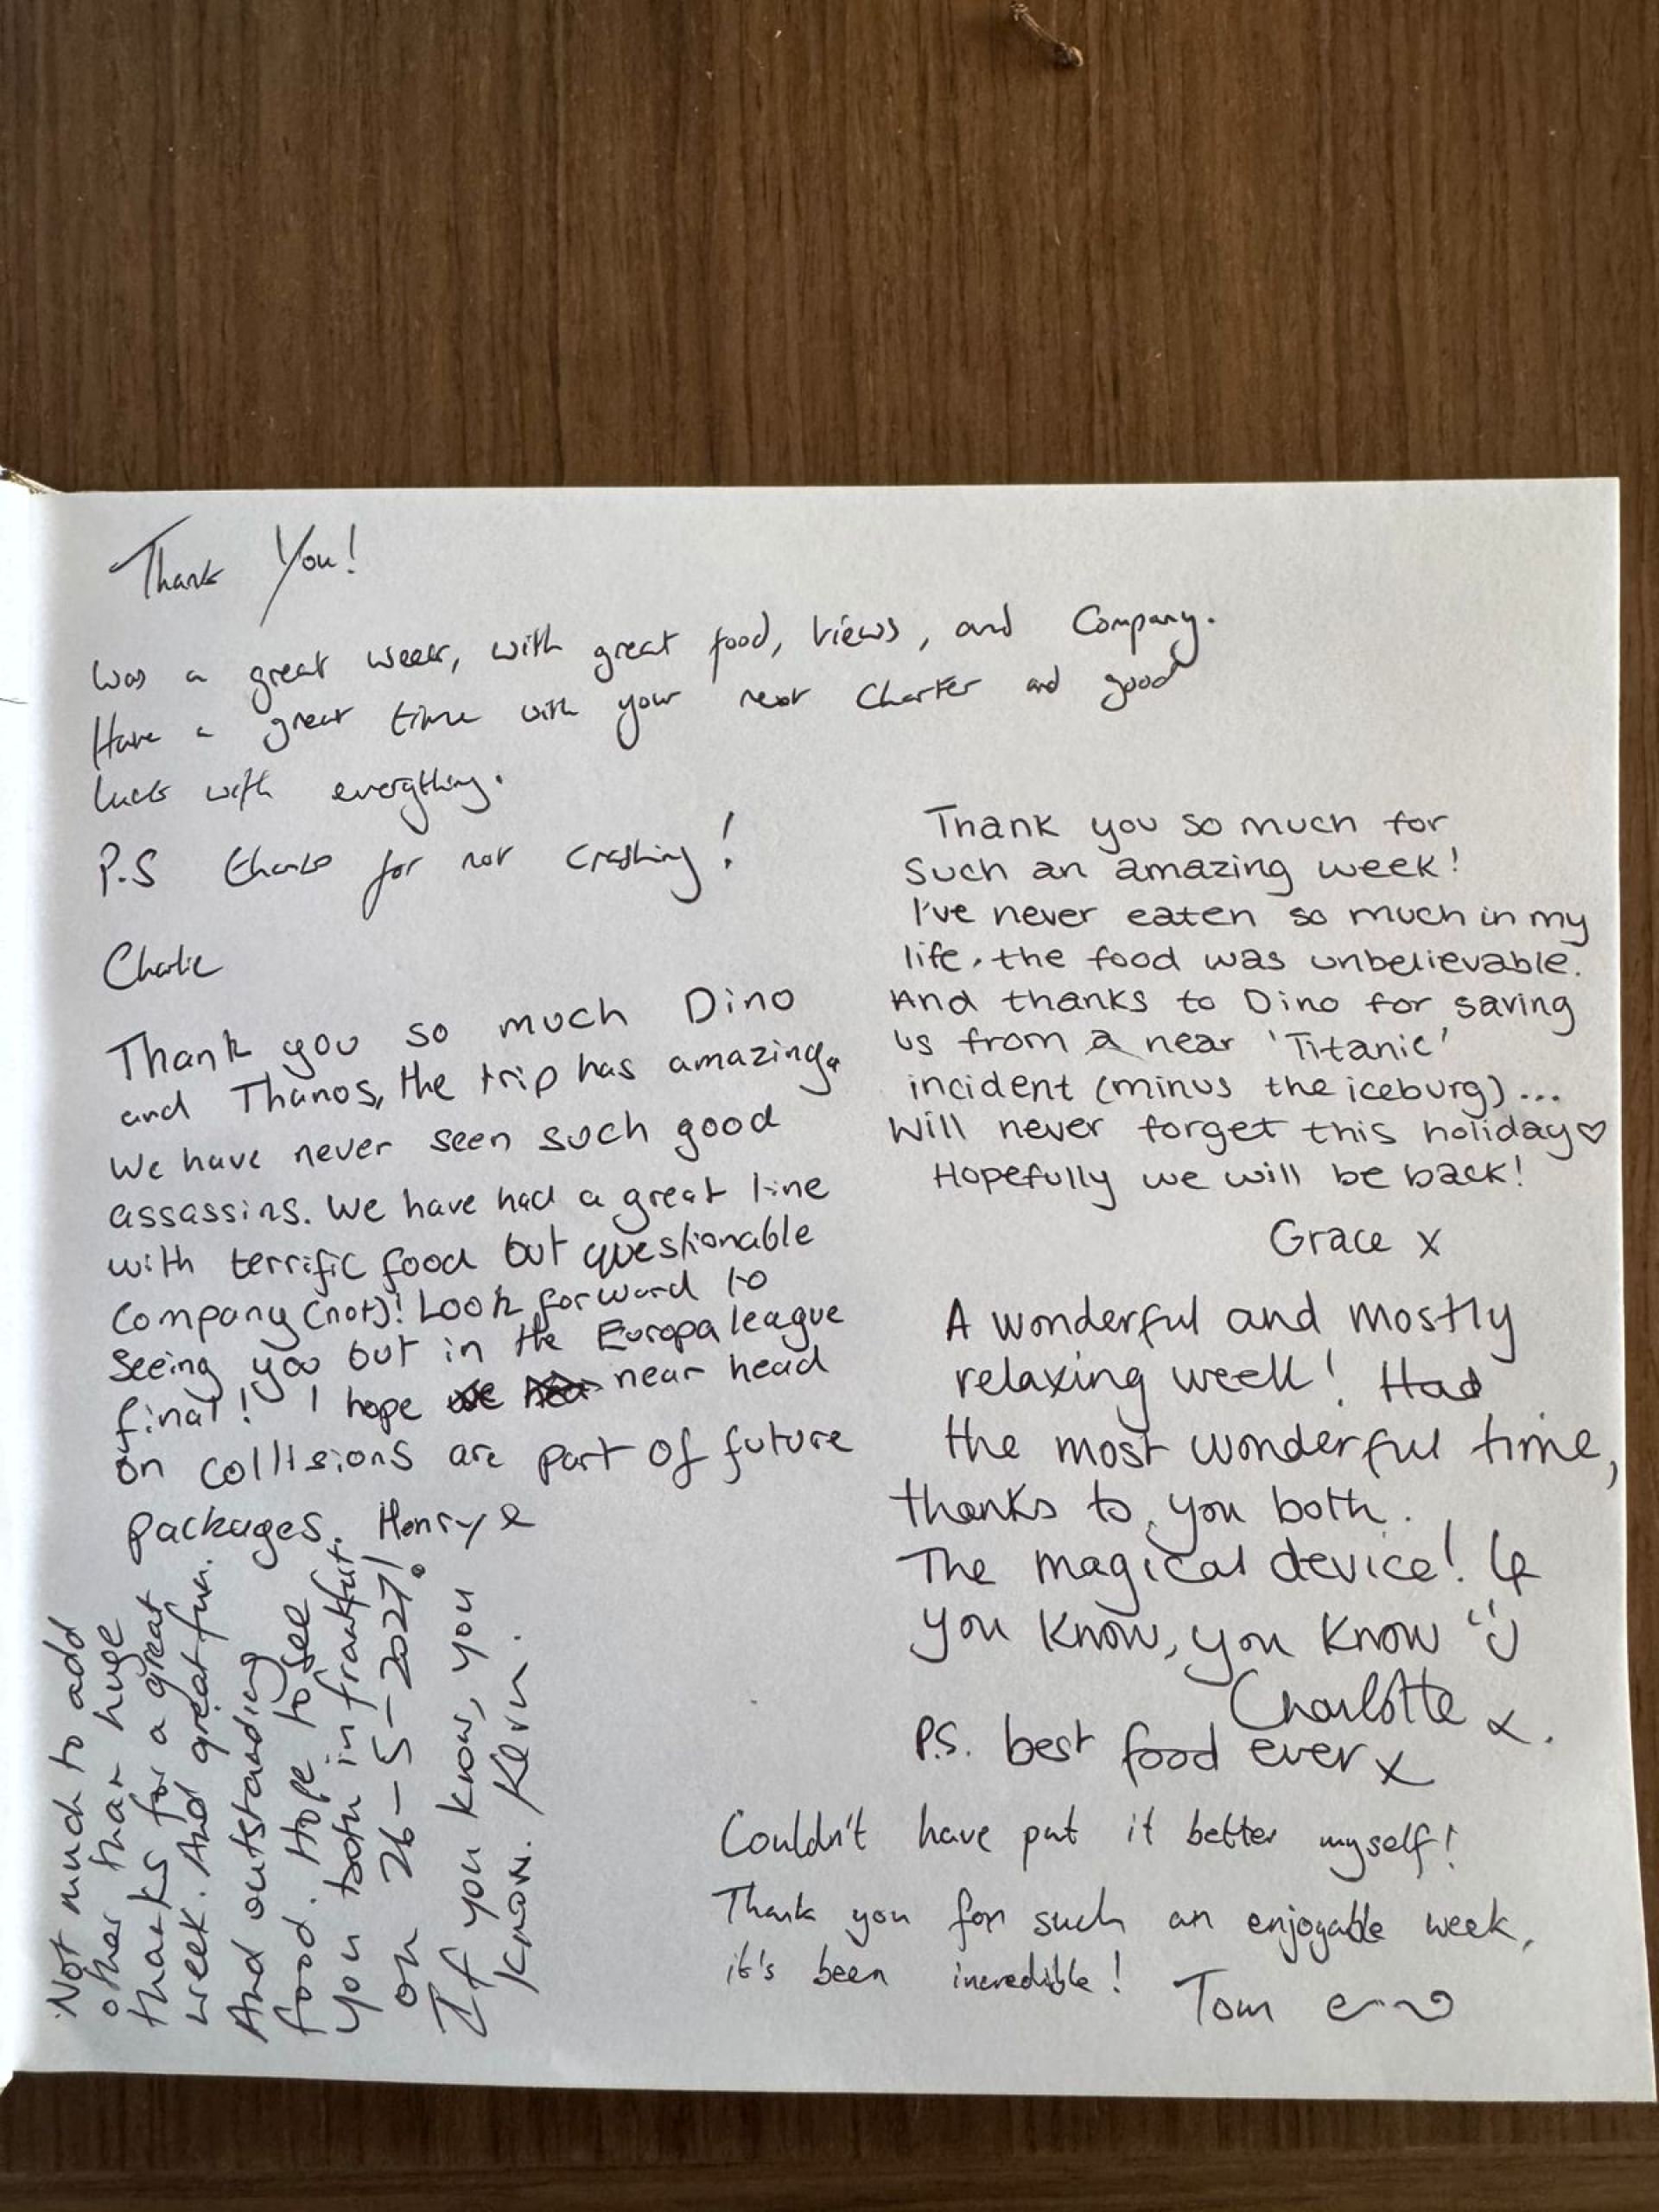 Thank You!
Was a great week, with great food, views, and Company.
Have a great time with your next Charter and good
luck with everything.
P.S thanks for not crashing!
Charlie
Thank you so much Dino
and Thanos, the trip has amazing.
We have never seen such good
assassins. We have had a great time
with terrific food but questionable
company (not)! Look forward to
seeing you out in the Europa league
final! I hope near head
on collisions are part of future
packages. Henry
Not much to add
other than huge
thanks for a great
week. And great fun.
And outstanding
food. Hope to see
you both in frankfut.
on 26-5-2027!
If you know, you
know. Kevin.
Thank you so much for
such an amazing week!
I've never eaten so much in my
life, the food was unbelievable.
And thanks to Dino for saving
us from a near 'Titanic'
incident (minus the iceburg)...
Will never forget this holiday♡
Hopefully we will be back!
Grace x
A wonderful and mostly
relaxing week! Had
the most wonderful time,
thanks to you both.
The magical device! If
you know, you know
Charlotte x.
P.S. best food ever x
Couldn't have put it better myself!
Thank you for such an enjoyable week,
it's been incredible! Tom